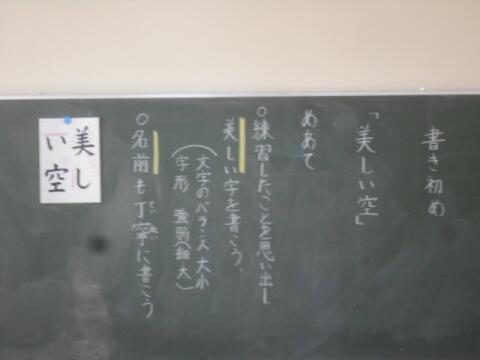 書き初め
「美しい空」
めあて
○練習したことを思い出し
美しい字を書こう。
(文字のバランス 大小
字形 強弱(細・太))
○名前も丁寧に書こう
ていねい
美し
い空